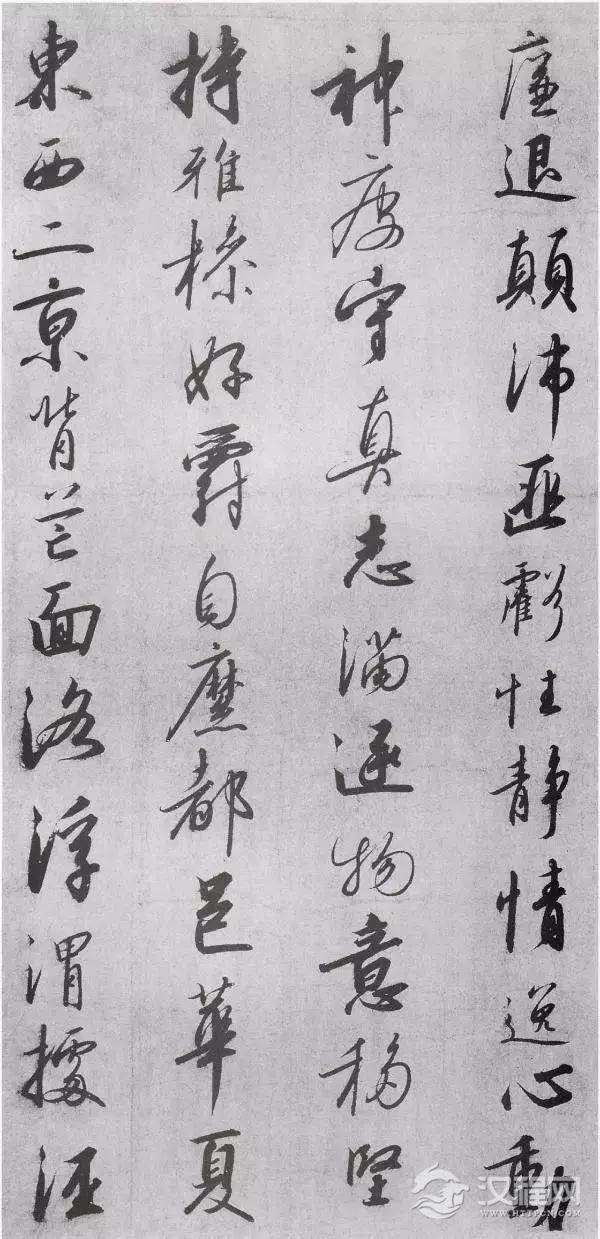 廉退顛沛匪虧性静情逸心動
神疲守真志滿逐物意移堅
持雅操好爵自縻都邑華夏
東西二京背芒面洛浮渭據涇
汉程网
WWW.HTTPCN.COM